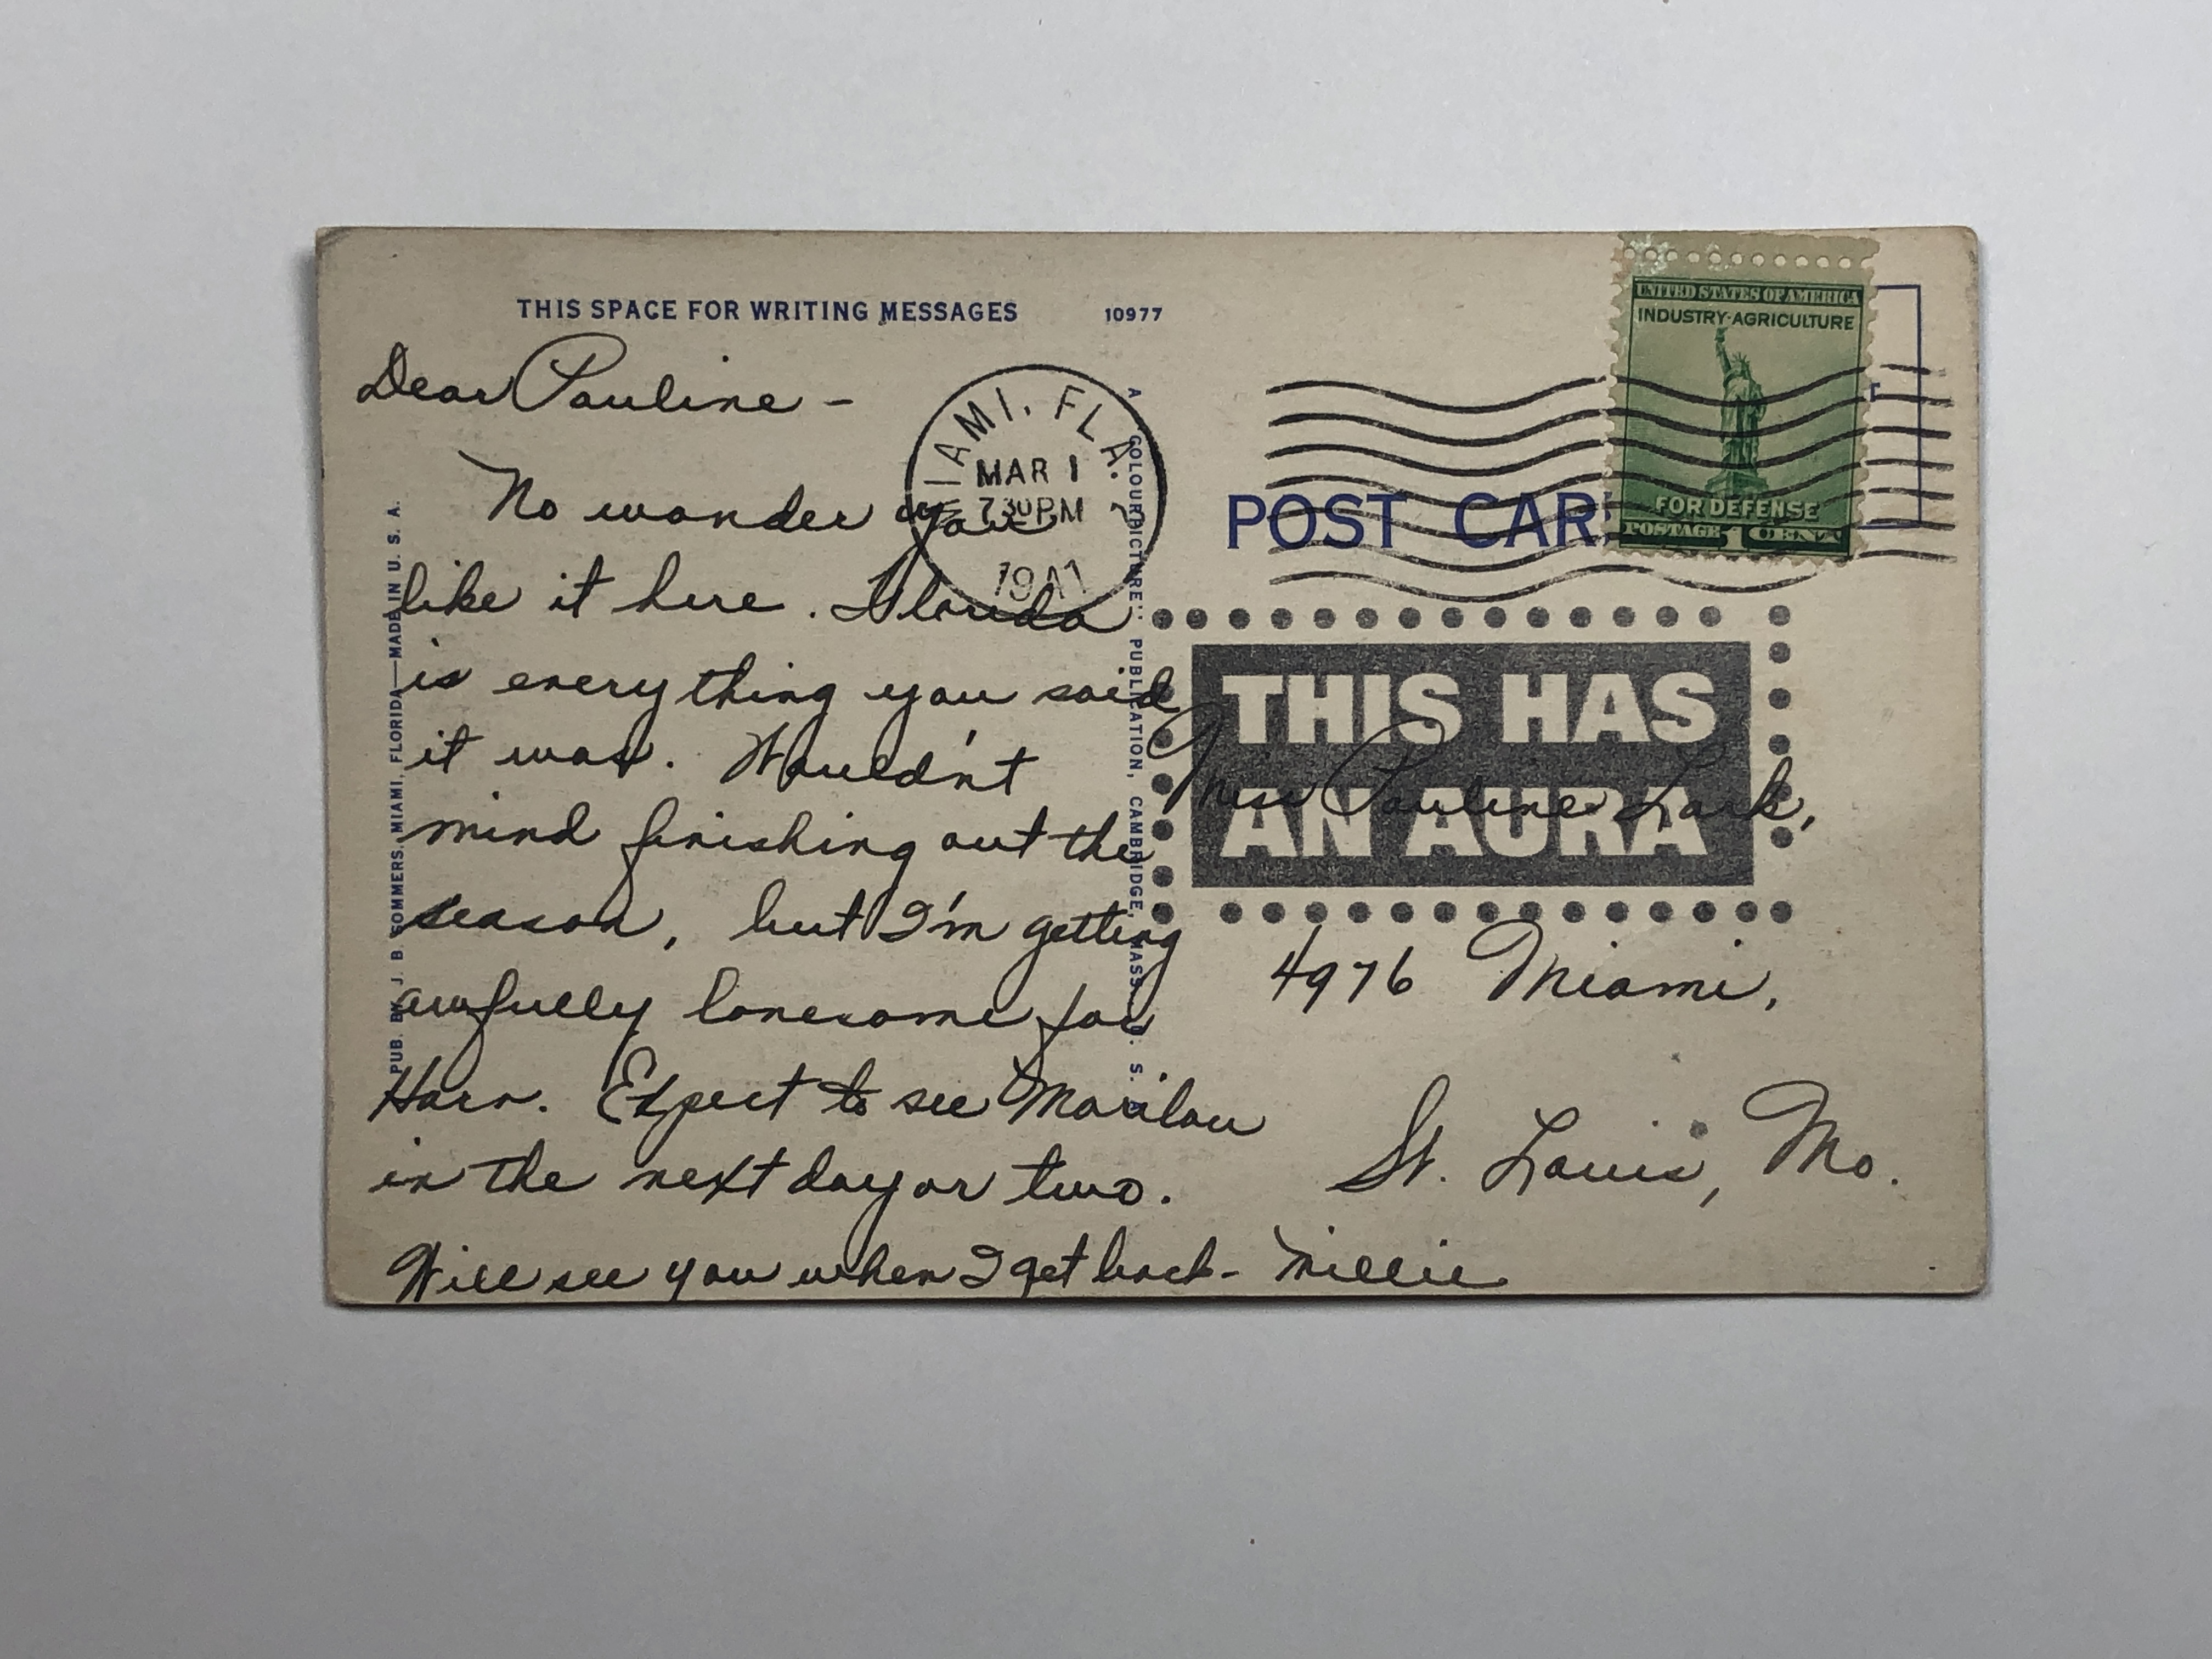 THIS SPACE FOR WRITING MESSAGES
10977
Dear Pauline -
No wonder you
like it here. Florida
is everything you said
it was. Wouldn't
mind finishing out the
season, but I'm getting
awfully lonesome for
Harv. Expect to see Marilou
in the next day or two.
Will see you when I get back - Millie
PUB. BY J. B. SOMMERS, MIAMI, FLORIDA—MADE IN U. S. A.
A "COLOURPICTURE" PUBLICATION, CAMBRIDGE, MASS., U. S. A.
MIAMI, FLA. 2
MAR 1
7 30 PM
1941
POST CAR
UNITED STATES OF AMERICA
INDUSTRY·AGRICULTURE
FOR DEFENSE
POSTAGE 1 CENT
THIS HAS
AN AURA
Miss Pauline Lark,
4976 Miami,
St. Louis, Mo.